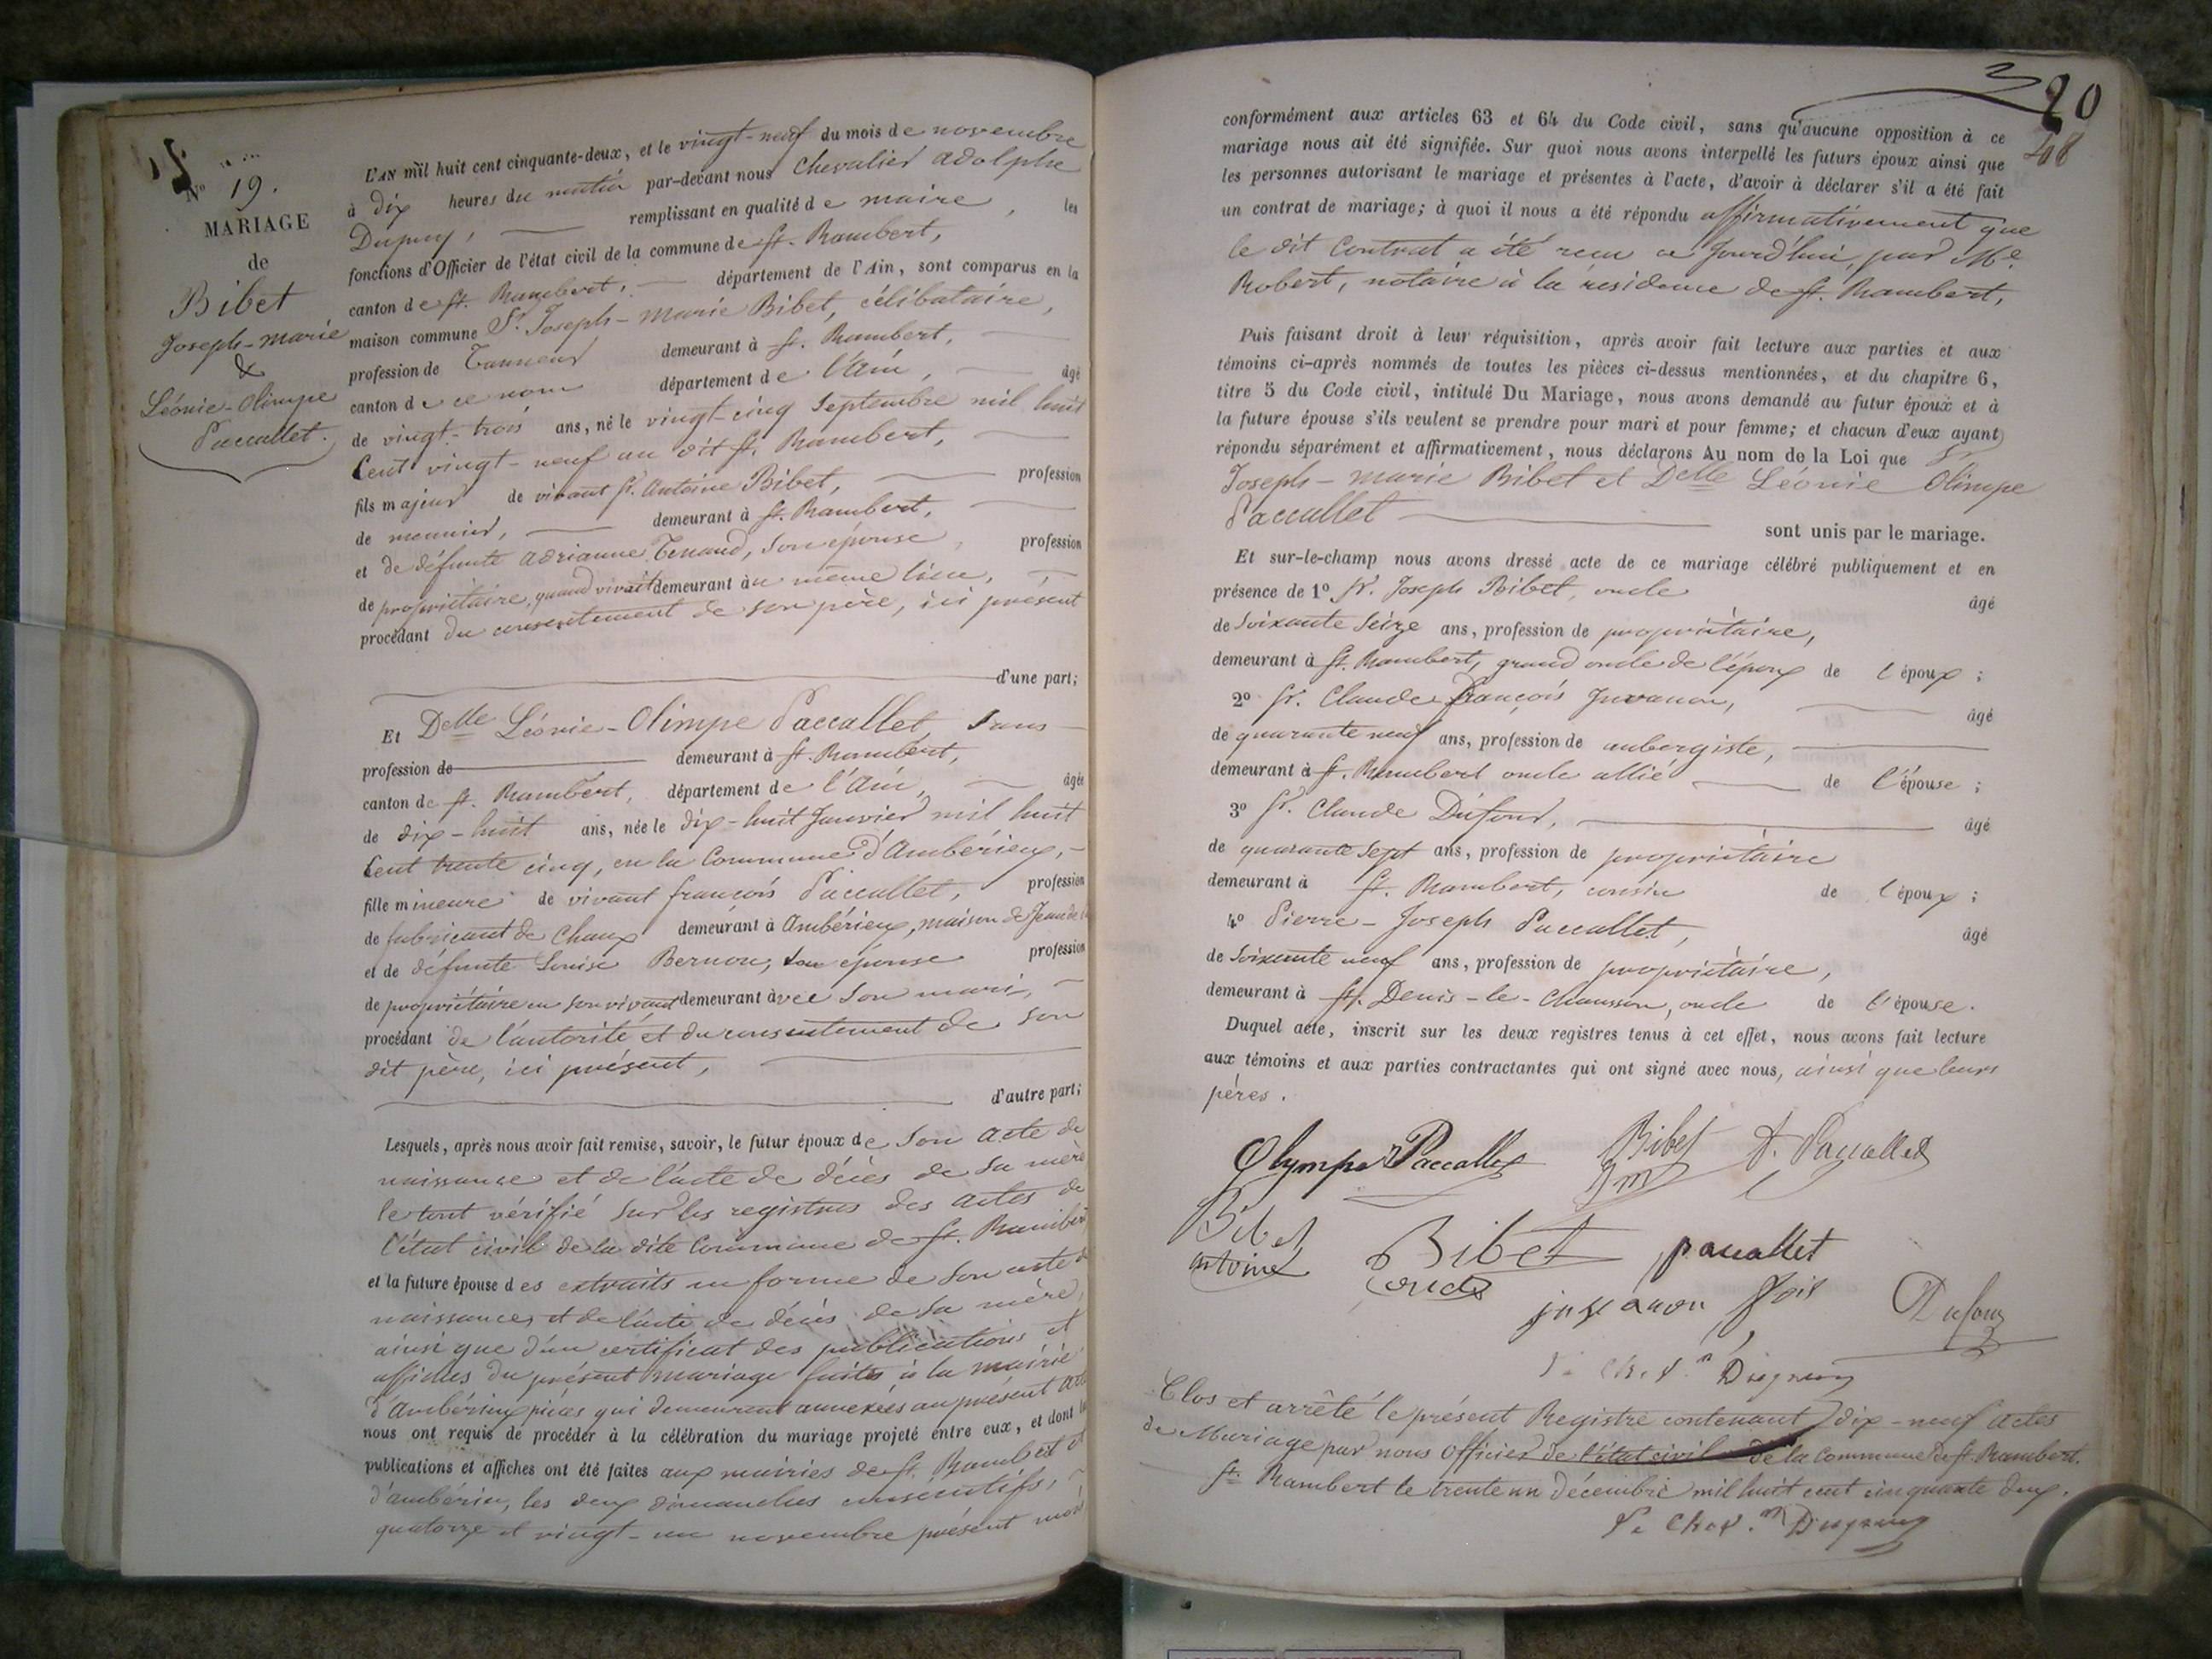 Nº 19.
MARIAGE
de
Bibet
Joseph-marie
&
Léonie-Olimpe
Paccallet.
L'AN mil huit cent cinquante-deux, et le vingt-neuf du mois de novembre
à dix heures du matin par-devant nous Chevalier Adolphe
Dupuy, remplissant en qualité de maire, les
fonctions d'Officier de l'état civil de la commune de St. Rambert,
canton de St. Rambert, département de l'Ain, sont comparus en la
maison commune Sr. Joseph-Marie Bibet, célibataire,
profession de Tanneur demeurant à St. Rambert,
canton de ce nom département de l'Ain, âgé
de vingt-trois ans, né le vingt-cinq Septembre mil huit
Cent vingt-neuf au dit St. Rambert,
fils majeur de vivant Sr. Antoine Bibet, profession
de meunier, demeurant à St. Rambert,
et de défunte Adrianne Tenaud, son épouse, profession
de propriétaire, quand vivait demeurant au même lieu,
procédant du consentement de son père, ici présent
d'une part;
Et Delle Léonie-Olimpe Paccallet, sans
profession de demeurant à St. Rambert,
canton de St. Rambert, département de l'Ain, âgée
de dix-huit ans, née le dix-huit Janvier mil huit
Cent trente cinq, en la Commune d'Ambérieux,
fille mineure de vivant françois Paccallet, profession
de fabricant de Chaux demeurant à Ambérieux, maison de
et de défunte Louise Bernon, son épouse profession
de propriétaire en son vivant demeurant avec son mari,
procédant de l'autorité et du consentement de son
dit père, ici présent,
d'autre part;
Lesquels, après nous avoir fait remise, savoir, le futur époux de son acte de
naissance et de l'acte de décès de sa mère
le tout vérifié sur les registres des actes de
l'état civil de la dite Commune de St. Rambert
et la future épouse des extraits en forme de son acte de
naissance, et de l'acte de décès de sa mère,
ainsi que d'un certificat des publications et
affiches du présent mariage faites à la mairie
d'Ambérieux pièces qui demeurent annexées au présent acte
nous ont requis de procéder à la célébration du mariage projeté entre eux, et dont les
publications et affiches ont été faites aux mairies de St. Rambert et
d'ambérieu, les deux dimanches consécutifs,
quatorze et vingt-un novembre présent mois
20
208
conformément aux articles 63 et 64 du Code civil, sans qu'aucune opposition à ce
mariage nous ait été signifiée. Sur quoi nous avons interpellé les futurs époux ainsi que
les personnes autorisant le mariage et présentes à l'acte, d'avoir à déclarer s'il a été fait
un contrat de mariage; à quoi il nous a été répondu affirmativement que
le dit Contrat a été reçu ce Jourd'hui, par Me.
Robert, notaire à la résidence de St. Rambert,
Puis faisant droit à leur réquisition, après avoir fait lecture aux parties et aux
témoins ci-après nommés de toutes les pièces ci-dessus mentionnées, et du chapitre 6,
titre 5 du Code civil, intitulé Du Mariage, nous avons demandé au futur époux et à
la future épouse s'ils veulent se prendre pour mari et pour femme; et chacun d'eux ayant
répondu séparément et affirmativement, nous déclarons Au nom de la Loi que Sr
Joseph-marie Bibet et Delle Léonie Olimpe
Paccallet sont unis par le mariage.
Et sur-le-champ nous avons dressé acte de ce mariage célébré publiquement et en
présence de 1º Sr. Joseph Bibet, oncle âgé
de soixante seize ans, profession de propriétaire,
demeurant à St. Rambert, grand oncle de l'époux de l'époux;
2º Sr. Claude françois Juvanon, âgé
de quarante neuf ans, profession de aubergiste,
demeurant à St. Rambert oncle allié de l'épouse;
3º Sr. Claude Dufour, âgé
de quarante sept ans, profession de propriétaire
demeurant à St. Rambert, cousin de l'époux;
4º Pierre-Joseph Paccallet, âgé
de soixante neuf ans, profession de propriétaire,
demeurant à St. Denis-le-Chausson, oncle de l'épouse.
Duquel acte, inscrit sur les deux registres tenus à cet effet, nous avons fait lecture
aux témoins et aux parties contractantes qui ont signé avec nous, ainsi que leurs
pères.
Olympe Paccallet Bibet Jm f. Paccallet
Bibet antoine Bibet oncle paccallet
juvanon fois Dufour
Le Cher. Dupuy
Clos et arrêté le présent Registre contenant dix-neuf actes
de Mariage par nous officier de l'état civil de la commune de St. Rambert.
St. Rambert le trente un décembre mil huit cent cinquante deux.
Le Cher. Dupuy